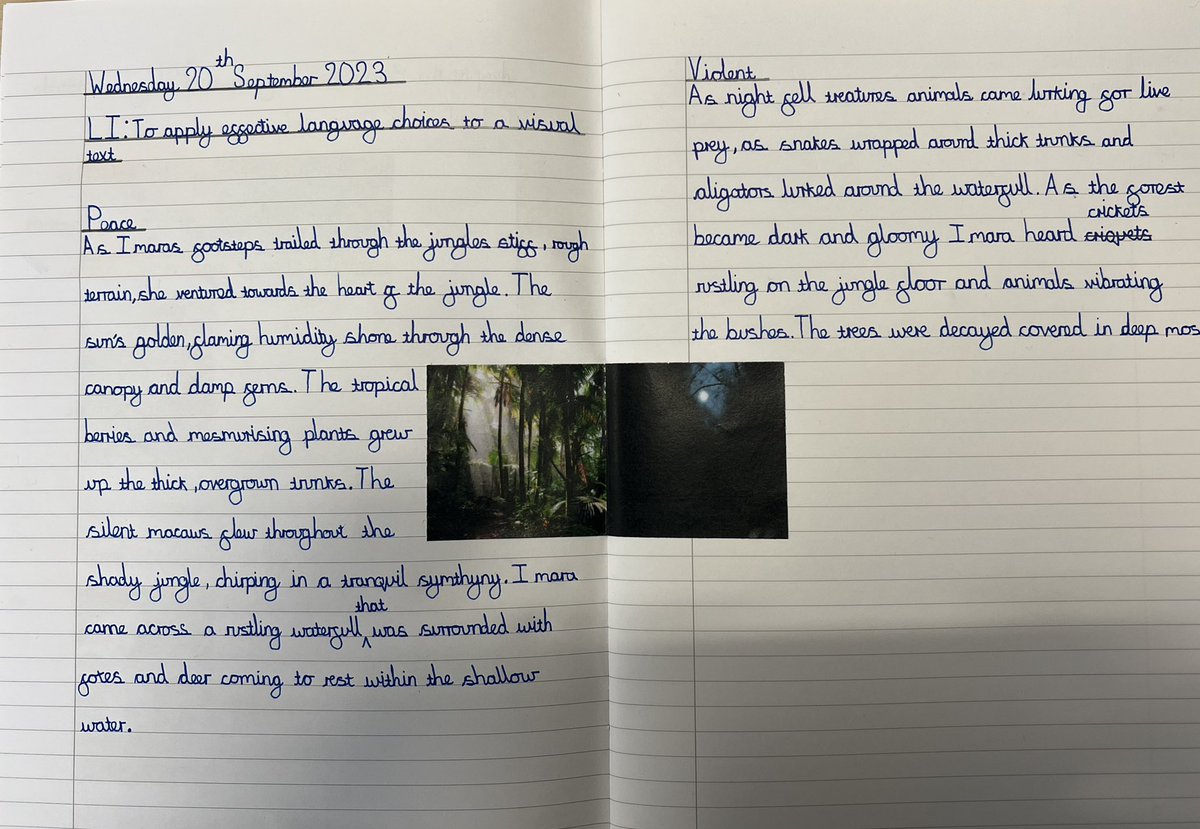 Wednesday 20th September 2023
LI: To apply effective language choices to a visual
text
Peace
As Imaras footsteps trailed through the jungles stiff, rough
terrain, she ventured towards the heart of the jungle. The
sun's golden, flaming humidity shone through the dense
canopy and damp ferns. The tropical
berries and mesmurising plants grew
up the thick, overgrown trunks. The
silent macaws flew throughout the
shady jungle, chirping in a tranquil symthyny. Imara
that
came across a rustling waterfull was surrounded with
foxes and deer coming to rest within the shallow
water.
Violent
As night fell creatures animals came lurking for live
prey, as snakes wrapped around thick trunks and
aligators lurked around the waterfull. As the forest
crickets
became dark and gloomy Imara heard criquets
rustling on the jungle floor and animals vibrating
the bushes. The trees were decayed covered in deep mos